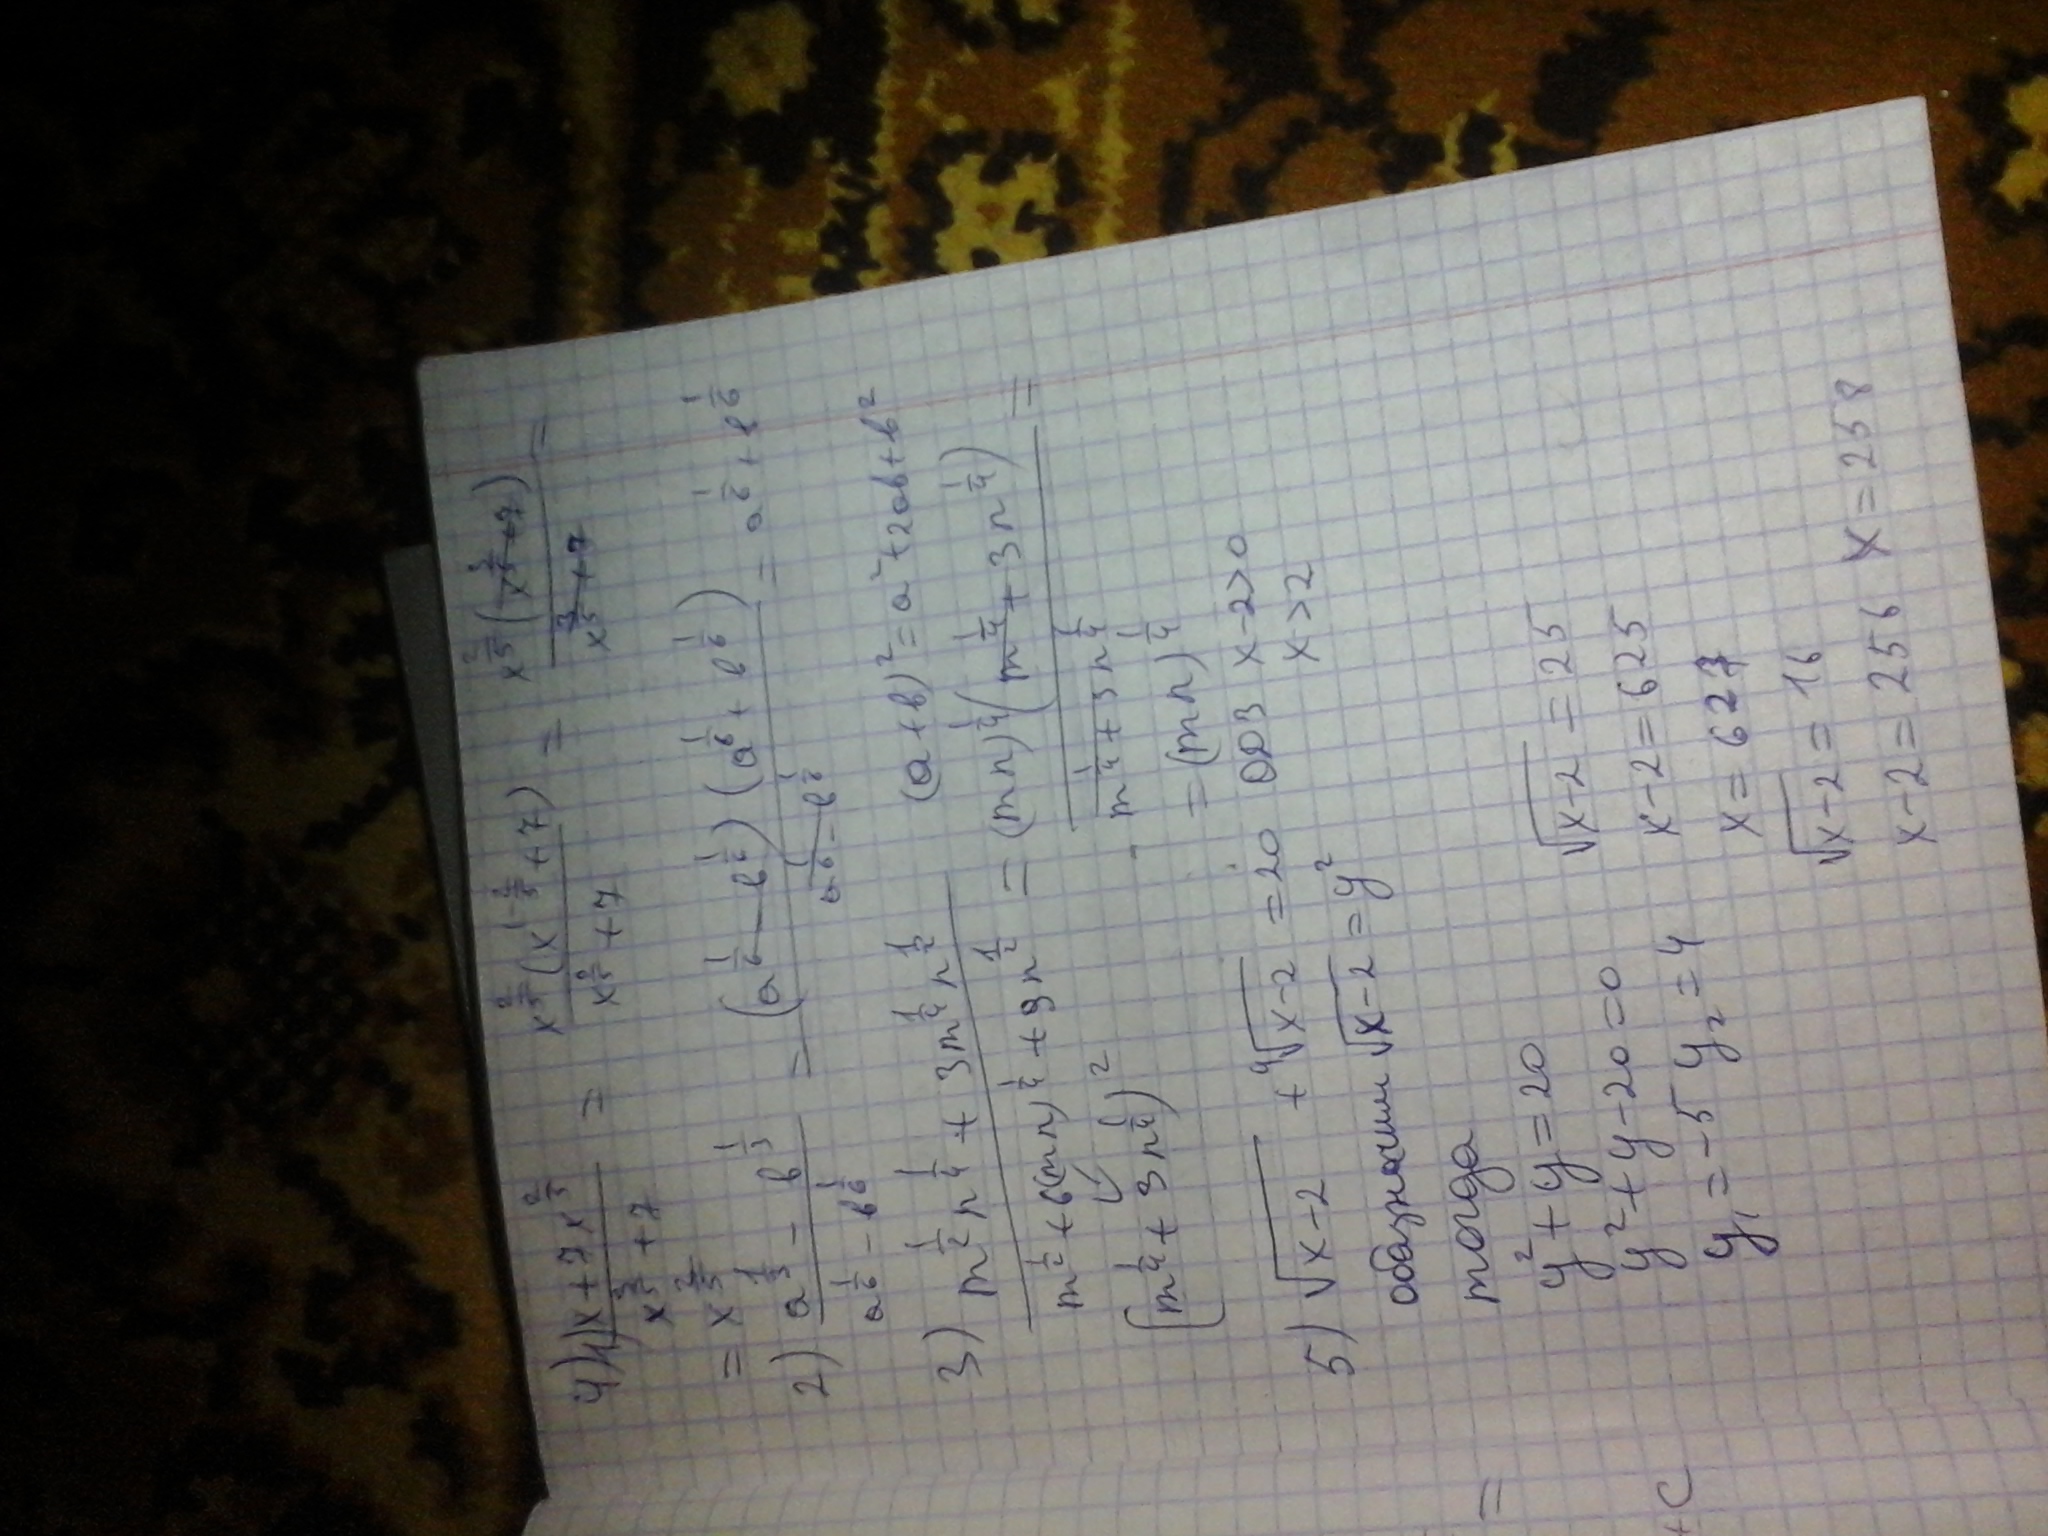 4) 1) (x + 7x^(2/5)) / (x^(3/5) + 7) = x^(2/5)(x^(1-2/5) + 7) / (x^(3/5) + 7) = x^(2/5)(x^(3/5) + 7) / (x^(3/5) + 7) =
= x^(2/5)
2) (a^(1/3) - b^(1/3)) / (a^(1/6) - b^(1/6)) = (a^(1/6) - b^(1/6))(a^(1/6) + b^(1/6)) / (a^(1/6) - b^(1/6)) = a^(1/6) + b^(1/6)
(a+b)² = a² + 2ab + b²
3) (m^(1/2) n^(1/4) + 3m^(1/4) n^(1/2)) / (m^(1/2) + 6(mn)^(1/4) + 9n^(1/2)) = (mn)^(1/4)(m^(1/4) + 3n^(1/4)) / (m^(1/4) + 3n^(1/4)) =
(m^(1/4) + 3n^(1/4))²
= (mn)^(1/4)
5) √x-2 + ⁴√x-2 = 20 ОДЗ x-2>0
x>2
обозначим √x-2 = y²
тогда
y² + y = 20
y² + y - 20 = 0
y₁ = -5 y₂ = 4
√x-2 = 25
x-2 = 625
x = 627
√x-2 = 16
x-2 = 256 x = 258
=
+C